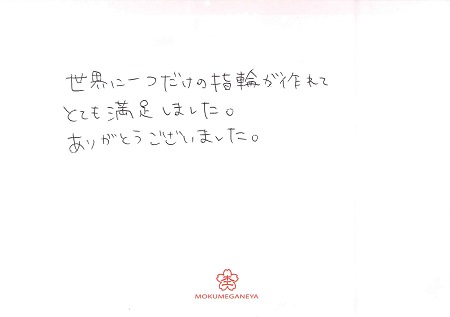 世界に一つだけの指輪が作れて
とても満足しました。
ありがとうございました。
MOKUMEGANEYA